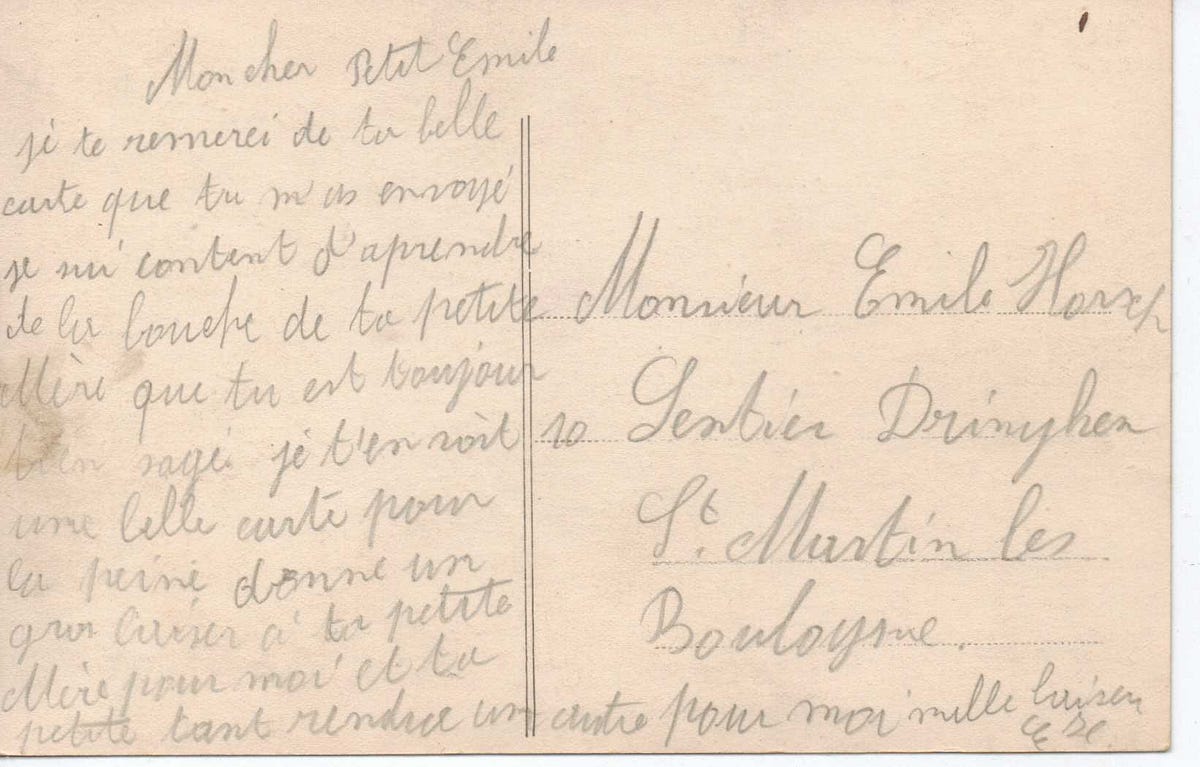 Mon cher Petit Emile
je te remerci de ta belle
carte que tu m'as envoyé
je sui content d'aprendre
de la bouche de ta petite
Mère que tu est toujour
bien sage je t'en voit
une belle carte pour
la peine donne un
gros baiser a ta petite
Mère pour moi et ta
petite tant rendre un autre pour moi mille baiser
Monsieur Emile
10 Sentier Dringhen
St. Martin les
Boulogne.